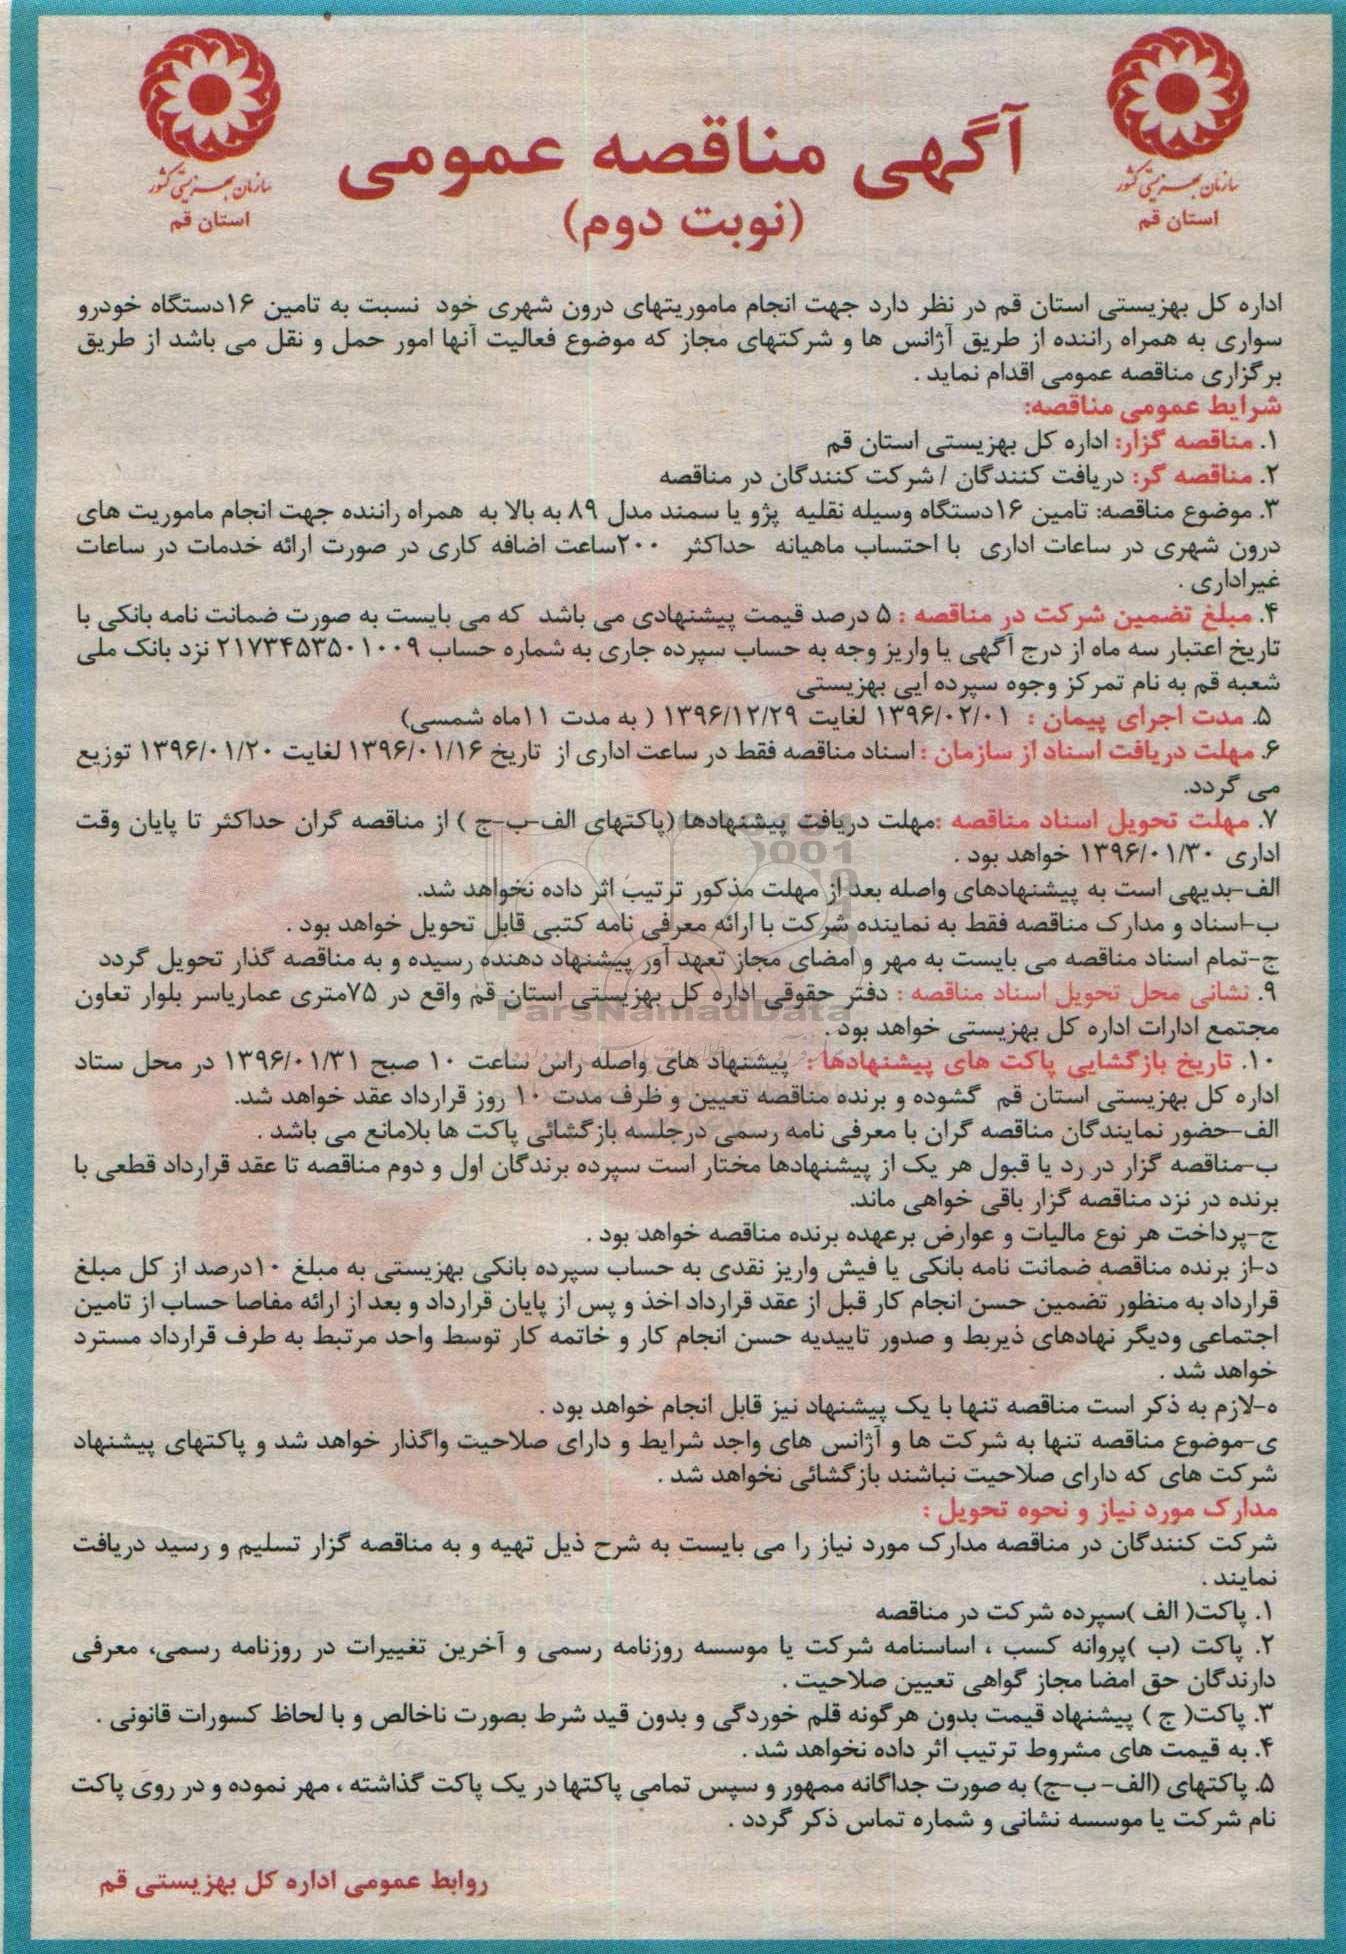 سازمان بهزیستی کشور
استان قم
سازمان بهزیستی کشور
استان قم
آگهی مناقصه عمومی
(نوبت دوم)
اداره کل بهزیستی استان قم در نظر دارد جهت انجام ماموریتهای درون شهری خود نسبت به تامین ۱۶دستگاه خودرو
سواری به همراه راننده از طریق آژانس ها و شرکتهای مجاز که موضوع فعالیت آنها امور حمل و نقل می باشد از طریق
برگزاری مناقصه عمومی اقدام نماید .
شرایط عمومی مناقصه:
۱. مناقصه گزار: اداره کل بهزیستی استان قم
۲. مناقصه گر: دریافت کنندگان / شرکت کنندگان در مناقصه
۳. موضوع مناقصه: تامین ۱۶دستگاه وسیله نقلیه پژو یا سمند مدل ۸۹ به بالا به همراه راننده جهت انجام ماموریت های
درون شهری در ساعات اداری با احتساب ماهیانه حداکثر ۲۰۰ساعت اضافه کاری در صورت ارائه خدمات در ساعات
غیراداری .
۴. مبلغ تضمین شرکت در مناقصه : ۵ درصد قیمت پیشنهادی می باشد که می بایست به صورت ضمانت نامه بانکی با
تاریخ اعتبار سه ماه از درج آگهی یا واریز وجه به حساب سپرده جاری به شماره حساب ۲۱۷۳۴۵۳۵۰۱۰۰۹ نزد بانک ملی
شعبه قم به نام تمرکز وجوه سپرده ایی بهزیستی
۵. مدت اجرای پیمان : ۱۳۹۶/۰۲/۰۱ لغایت ۱۳۹۶/۱۲/۲۹ ( به مدت ۱۱ماه شمسی)
۶. مهلت دریافت اسناد از سازمان : اسناد مناقصه فقط در ساعت اداری از تاریخ ۱۳۹۶/۰۱/۱۶ لغایت ۱۳۹۶/۰۱/۲۰ توزیع
می گردد.
۷. مهلت تحویل اسناد مناقصه :مهلت دریافت پیشنهادها (پاکتهای الف-ب-ج ) از مناقصه گران حداکثر تا پایان وقت
اداری ۱۳۹۶/۰۱/۳۰ خواهد بود .
الف-بدیهی است به پیشنهادهای واصله بعد از مهلت مذکور ترتیب اثر داده نخواهد شد.
ب-اسناد و مدارک مناقصه فقط به نماینده شرکت با ارائه معرفی نامه کتبی قابل تحویل خواهد بود .
ج-تمام اسناد مناقصه می بایست به مهر و امضای مجاز تعهد آور پیشنهاد دهنده رسیده و به مناقصه گذار تحویل گردد
۹. نشانی محل تحویل اسناد مناقصه : دفتر حقوقی اداره کل بهزیستی استان قم واقع در ۷۵متری عماریاسر بلوار تعاون
مجتمع ادارات اداره کل بهزیستی خواهد بود .
ParsNamadData
۱۰. تاریخ بازگشایی پاکت های پیشنهادها : پیشنهاد های واصله راس ساعت ۱۰ صبح ۱۳۹۶/۰۱/۳۱ در محل ستاد
اداره کل بهزیستی استان قم گشوده و برنده مناقصه تعیین و ظرف مدت ۱۰ روز قرارداد عقد خواهد شد.
الف-حضور نمایندگان مناقصه گران با معرفی نامه رسمی درجلسه بازگشائی پاکت ها بلامانع می باشد .
ب-مناقصه گزار در رد یا قبول هر یک از پیشنهادها مختار است سپرده برندگان اول و دوم مناقصه تا عقد قرارداد قطعی با
برنده در نزد مناقصه گزار باقی خواهی ماند.
ج-پرداخت هر نوع مالیات و عوارض برعهده برنده مناقصه خواهد بود .
د-از برنده مناقصه ضمانت نامه بانکی یا فیش واریز نقدی به حساب سپرده بانکی بهزیستی به مبلغ ۱۰درصد از کل مبلغ
قرارداد به منظور تضمین حسن انجام کار قبل از عقد قرارداد اخذ و پس از پایان قرارداد و بعد از ارائه مفاصا حساب از تامین
اجتماعی ودیگر نهادهای ذیربط و صدور تاییدیه حسن انجام کار و خاتمه کار توسط واحد مرتبط به طرف قرارداد مسترد
خواهد شد .
ه-لازم به ذکر است مناقصه تنها با یک پیشنهاد نیز قابل انجام خواهد بود .
ی-موضوع مناقصه تنها به شرکت ها و آژانس های واجد شرایط و دارای صلاحیت واگذار خواهد شد و پاکتهای پیشنهاد
شرکت های که دارای صلاحیت نباشند بازگشائی نخواهد شد .
مدارک مورد نیاز و نحوه تحویل :
شرکت کنندگان در مناقصه مدارک مورد نیاز را می بایست به شرح ذیل تهیه و به مناقصه گزار تسلیم و رسید دریافت
نمایند .
۱. پاکت( الف )سپرده شرکت در مناقصه
۲. پاکت (ب )پروانه کسب ، اساسنامه شرکت یا موسسه روزنامه رسمی و آخرین تغییرات در روزنامه رسمی، معرفی
دارندگان حق امضا مجاز گواهی تعیین صلاحیت .
۳. پاکت( ج ) پیشنهاد قیمت بدون هرگونه قلم خوردگی و بدون قید شرط بصورت ناخالص و با لحاظ کسورات قانونی .
۴. به قیمت های مشروط ترتیب اثر داده نخواهد شد .
۵. پاکتهای (الف- ب-ج) به صورت جداگانه ممهور و سپس تمامی پاکتها در یک پاکت گذاشته ، مهر نموده و در روی پاکت
نام شرکت یا موسسه نشانی و شماره تماس ذکر گردد .
روابط عمومی اداره کل بهزیستی قم